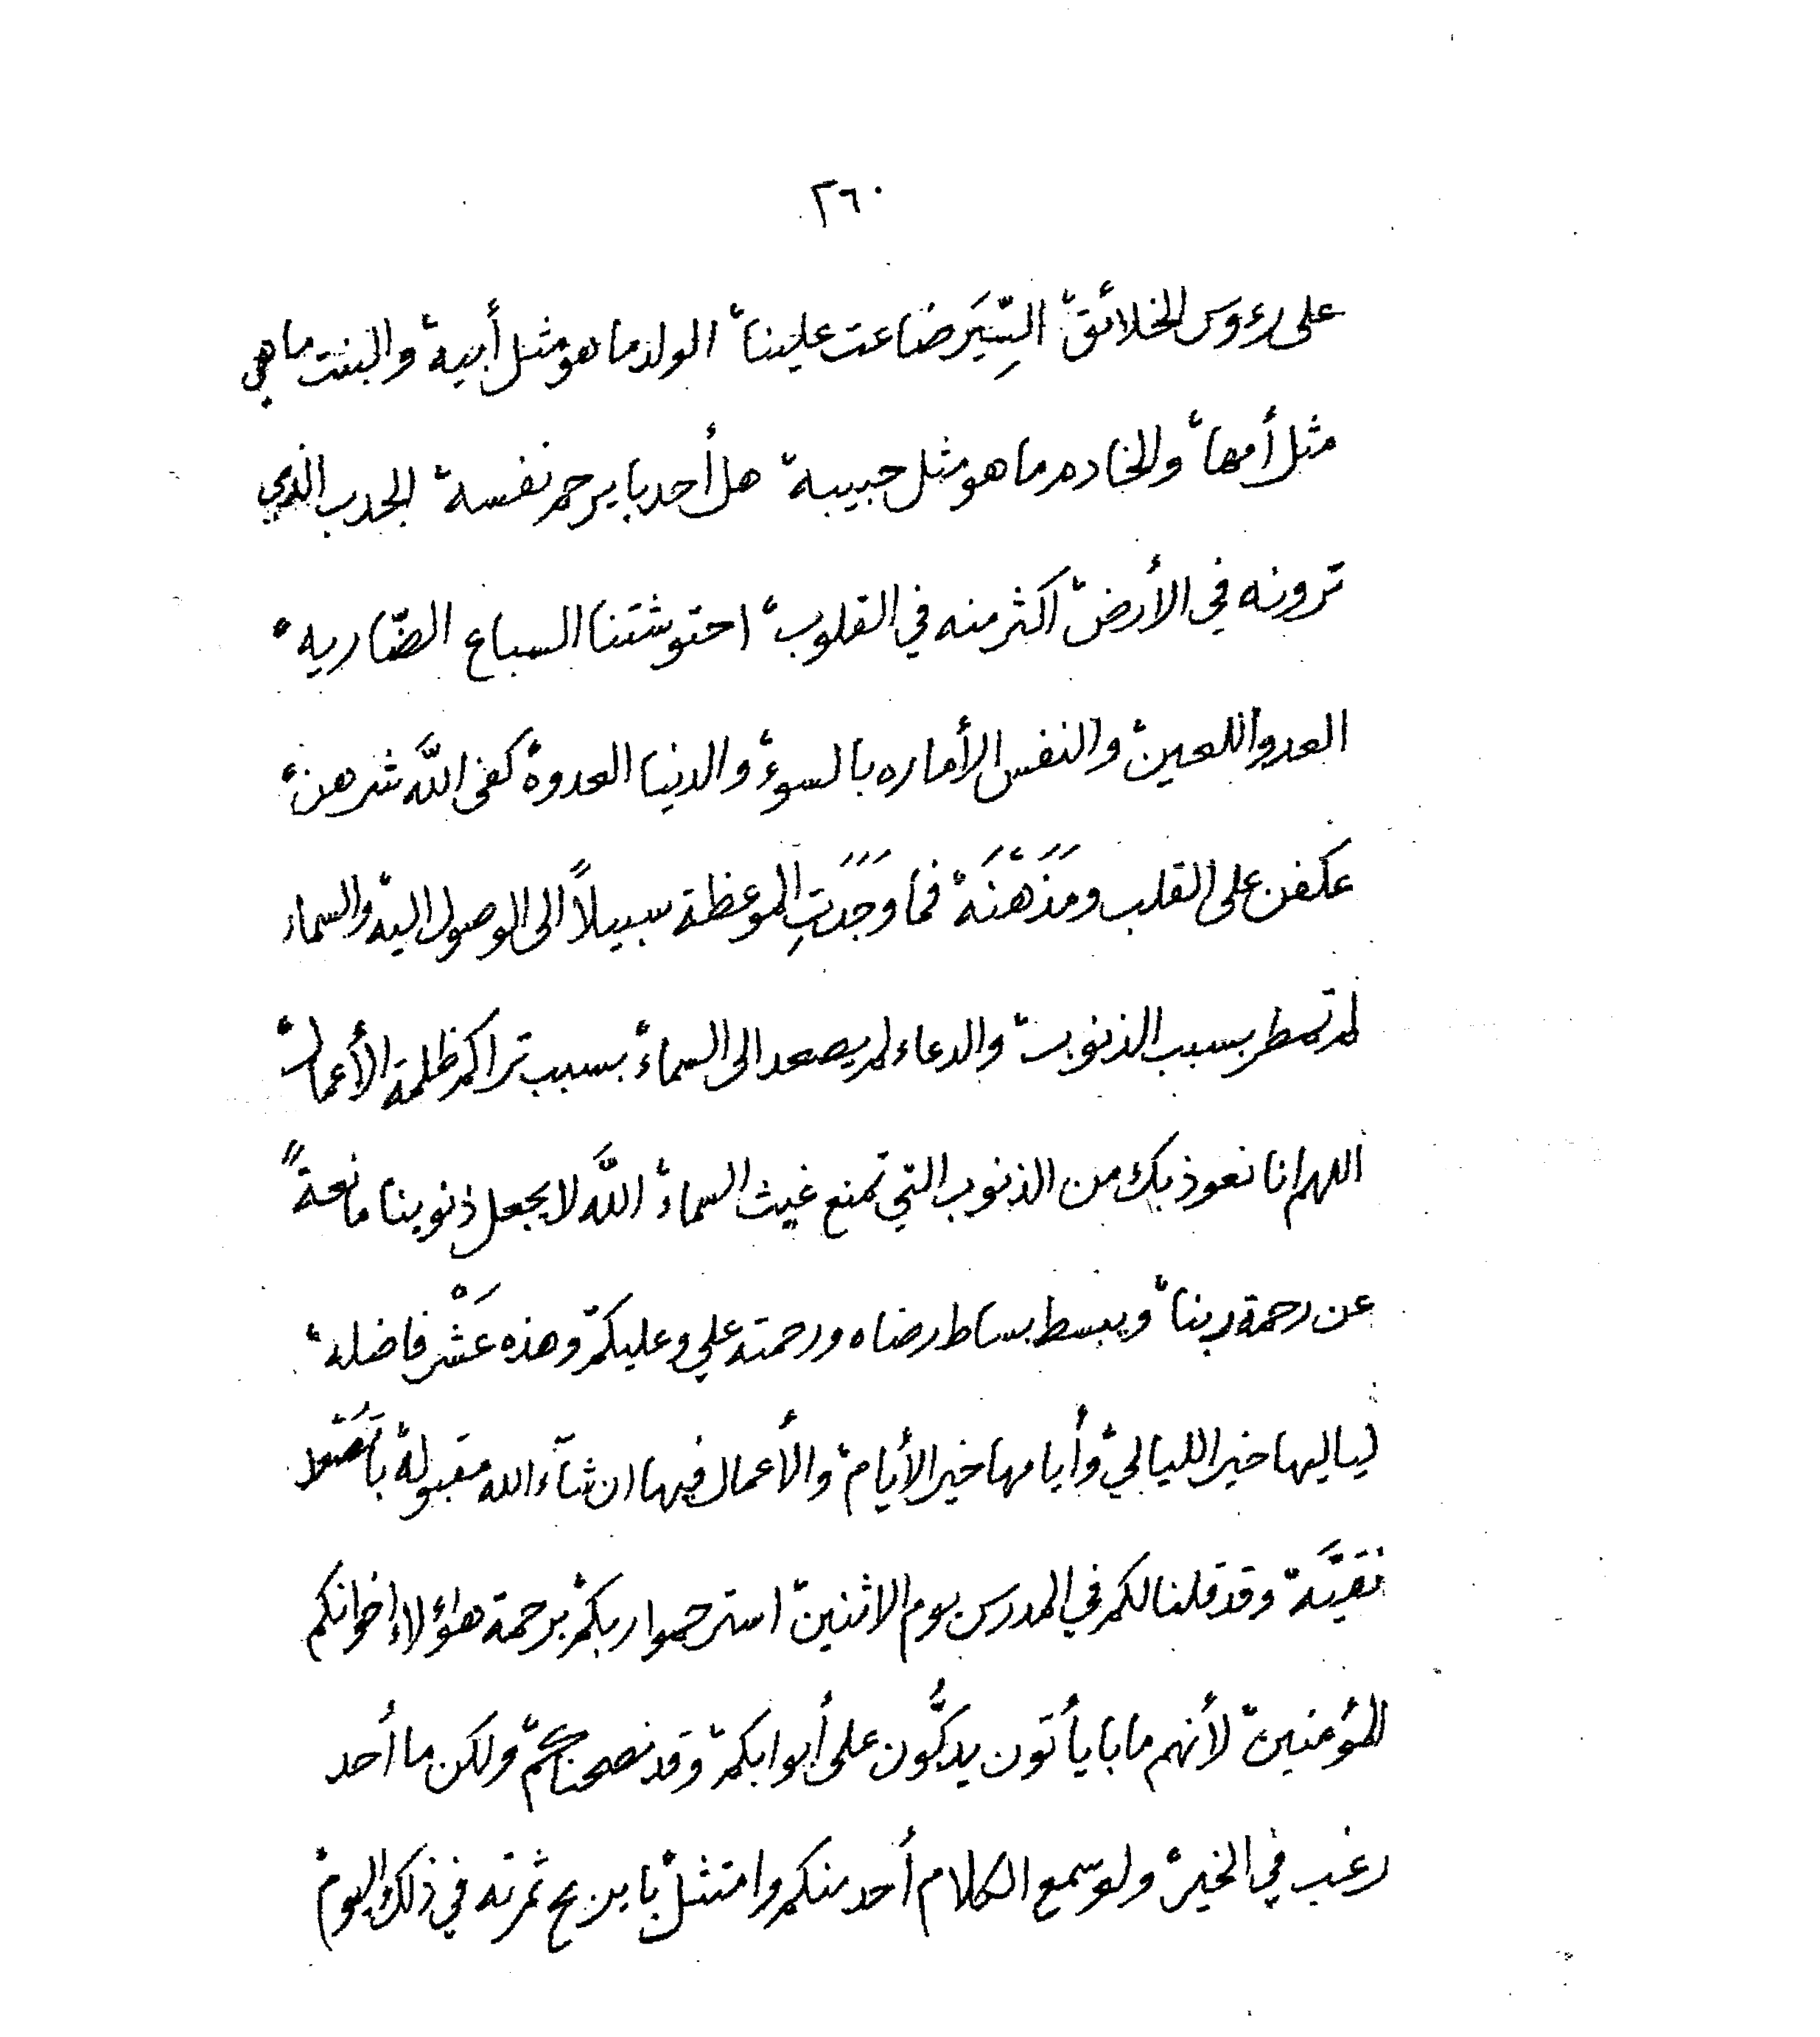 ٢٦٠
على رءوس الخلائق، السِّيَر ضاعت علينا، الولد ما هو مثل أبيه، والبنت ما هي
مثل أمها، والخادم ما هو مثل حبيبه، هل أحد بايرحم نفسه، الجدب الذي
ترونه في الأرض، اكثر منه في القلوب، احتوشتنا السباع الضّاريه،
العدو اللعين، والنفس الأماره بالسوء، والدنيا العدوه، كفى اللَّه شرهن،
عكفن على القلب ومَذَهْنَه، فما وَجَدَتِ الموعظة سبيلاً الى الوصول اليه، والسماء
لم تمطر بسبب الذنوب، والدعاء لم يصعد الى السماء، بسبب تراكم ظلمة الأعمال،
اللهم انا نعوذ بك من الذنوب التي تمنع غيث السماء، اللَّه لا يجعل ذنوبنا مانعةً
عن رحمة ربنا، ويبسط بساط رضاه ورحمته علي وعليكم، وهذه عَشْر فاضله،
لياليها خير الليالي، وأيامها خير الأيام، والأعمال فيها ان شآء الله مقبولة،
نقيَّه، وقد قلنا لكم في المدرس يوم الاثنين، استرحموا ربكم، برحمة هؤلاء إخوانكم
المؤمنين، لأنهم ما بايأتون يدكُّون على أبوابكم، وقد نصحناكم، ولكن ما أحد
رغب في الخير، ولو سمع الكلام أحد منكم وامتثل، بايربح ثمرته في ذلك اليوم،